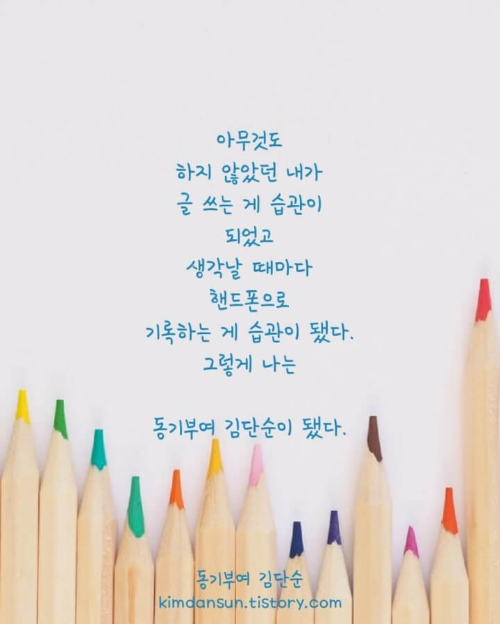 아무것도
하지 않았던 내가
글 쓰는 게 습관이
되었고
생각날 때마다
핸드폰으로
기록하는 게 습관이 됐다.
그렇게 나는
동기부여 김단순이 됐다.
동기부여 김단순
kimdansun.tistory.com